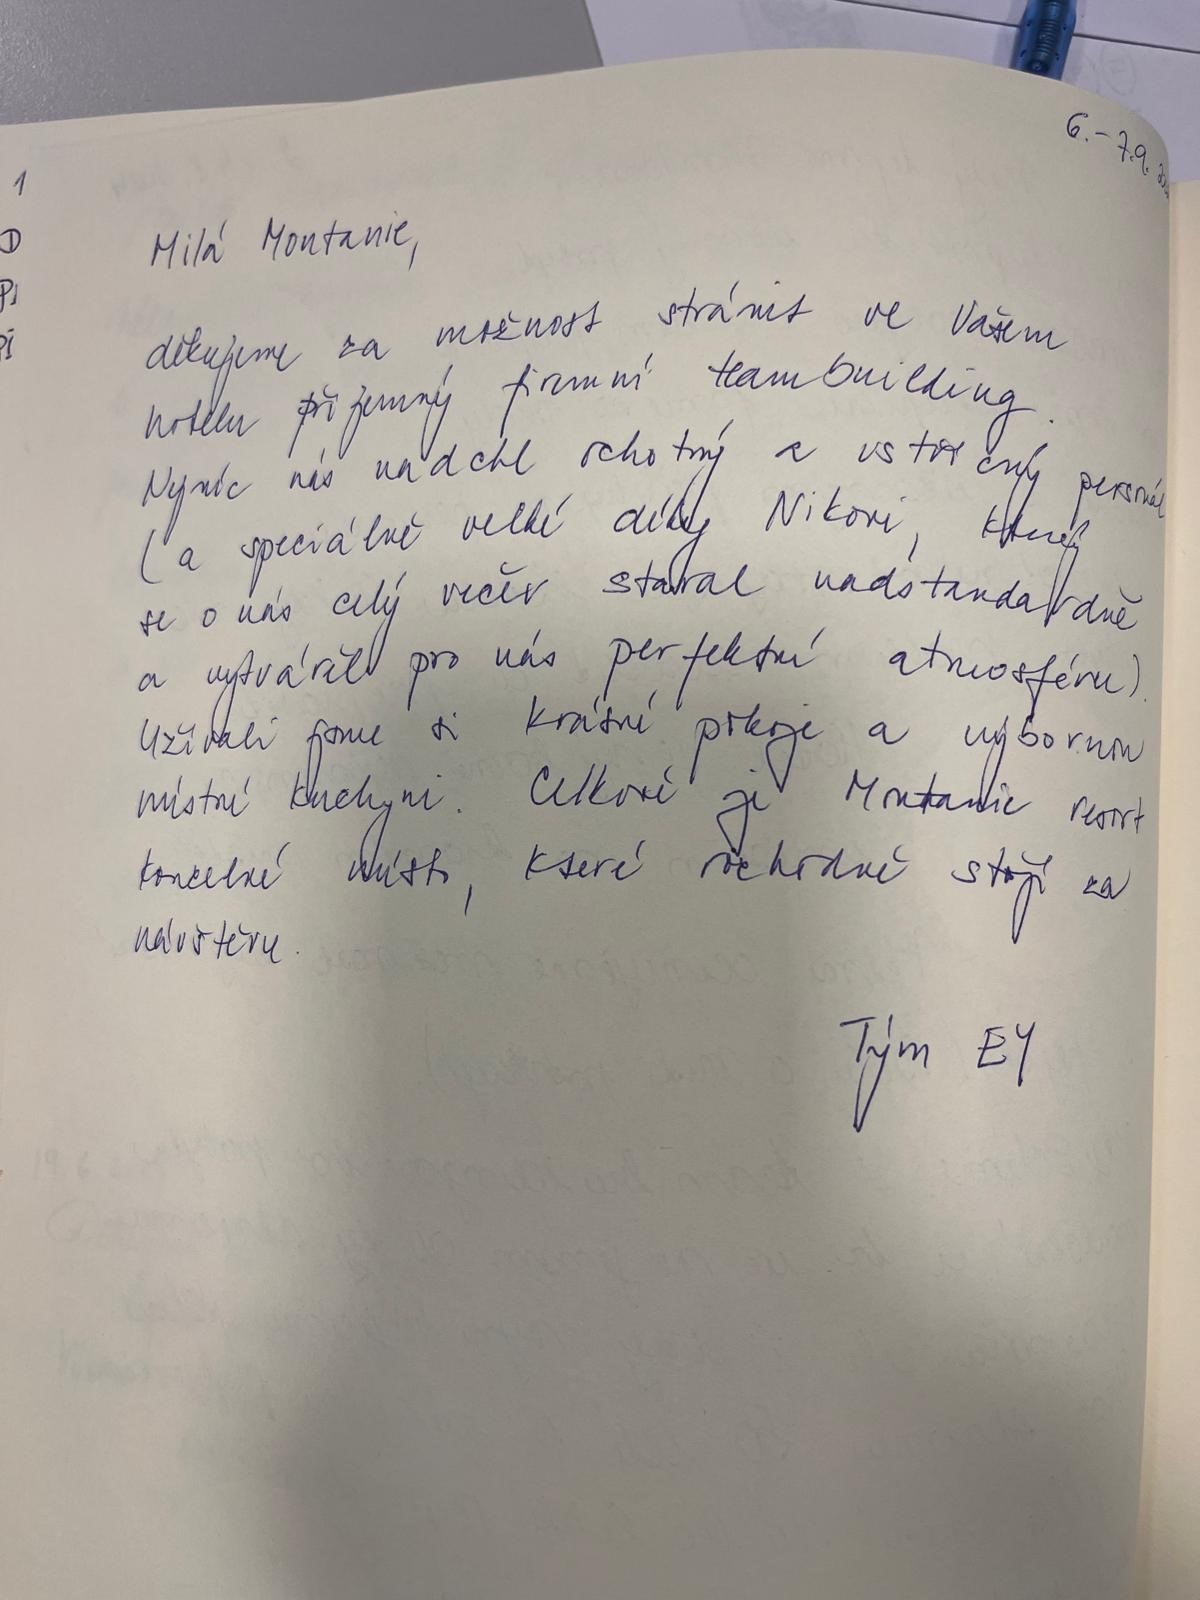 6.-7.9.
Milá Montanie,
děkujeme za možnost strávit ve Vašem
hotelu příjemný firemní teambuilding.
Nejvíc nás nadchl ochotný a vstřícný personál
(a speciálně velké díky Nikovi, který
se o nás celý večer staral nadstandardně
a vytvářel pro nás perfektní atmosféru).
Užívali jsme si krásné pokoje a výbornou
místní kuchyni. Celkově je Montanie resort
kouzelné místo, které rozhodně stojí za
návštěvu.
Tým EY